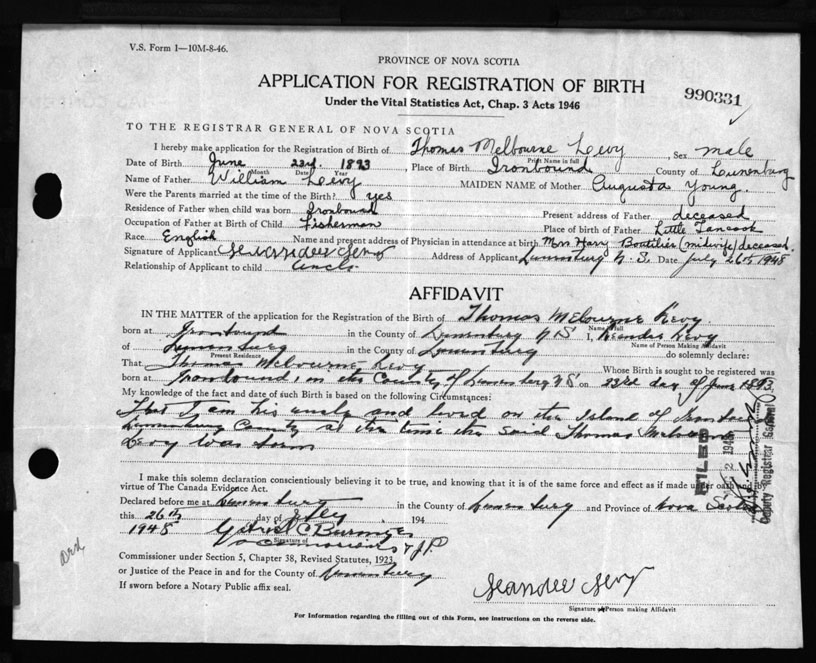 V.S. Form 1—10M-8-46.
PROVINCE OF NOVA SCOTIA
APPLICATION FOR REGISTRATION OF BIRTH
990331
Under the Vital Statistics Act, Chap. 3 Acts 1946
TO THE REGISTRAR GENERAL OF NOVA SCOTIA
I hereby make application for the Registration of Birth of Thomas Melbourne Levy, Sex male
Print Name in full
Date of Birth June 23rd. 1893, Place of Birth Ironbound County of Lunenburg
Month Date Year
Name of Father William Levy MAIDEN NAME of Mother Augusta Young.
Were the Parents married at the time of the Birth? yes
Residence of Father when child was born Ironbound Present address of Father deceased
Occupation of Father at Birth of Child Fisherman Place of birth of Father Little Tancook
Race English Name and present address of Physician in attendance at birth Mrs Harry Boutilier (midwife) deceased.
Signature of Applicant Leander Levy Address of Applicant Lunenburg N.S. Date July 26th 1948
Relationship of Applicant to child Uncle
AFFIDAVIT
IN THE MATTER of the application for the Registration of the Birth of Thomas Melbourne Levy
Name in full
born at Ironbound in the County of Lunenburg NS I, Leander Levy
Name of Person Making Affidavit
of Lunenburg in the County of Lunenburg do solemnly declare:
Present Residence
That Thomas Melbourne Levy Whose Birth is sought to be registered was
born at Ironbound, in the County of Lunenburg NS on 23rd day of June 1893
My knowledge of the fact and date of such Birth is based on the following Circumstances:
That I am his uncle and lived on the Island of Ironbound
Lunenburg County at the time the said Thomas Melbourne
Levy was born
FILED
2 1948
Deputy Registrar General
I make this solemn declaration conscientiously believing it to be true, and knowing that it is of the same force and effect as if made under oath and by
virtue of The Canada Evidence Act.
Declared before me at Lunenburg in the County of Lunenburg and Province of Nova Scotia
this 26th day of July 194
1948
Signature of
Commissioner under Section 5, Chapter 38, Revised Statutes, 1923
or Justice of the Peace in and for the County of Lunenburg
If sworn before a Notary Public affix seal.
Leander Levy
Signature of Person making Affidavit
For Information regarding the filling out of this Form, see instructions on the reverse side.